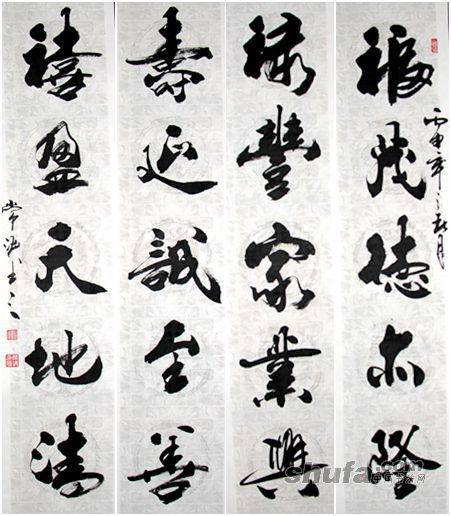 福茂德亦隆
丙申年之秋月
祿豐家業興
壽延誠至善
禧盈天地清
常
shufa